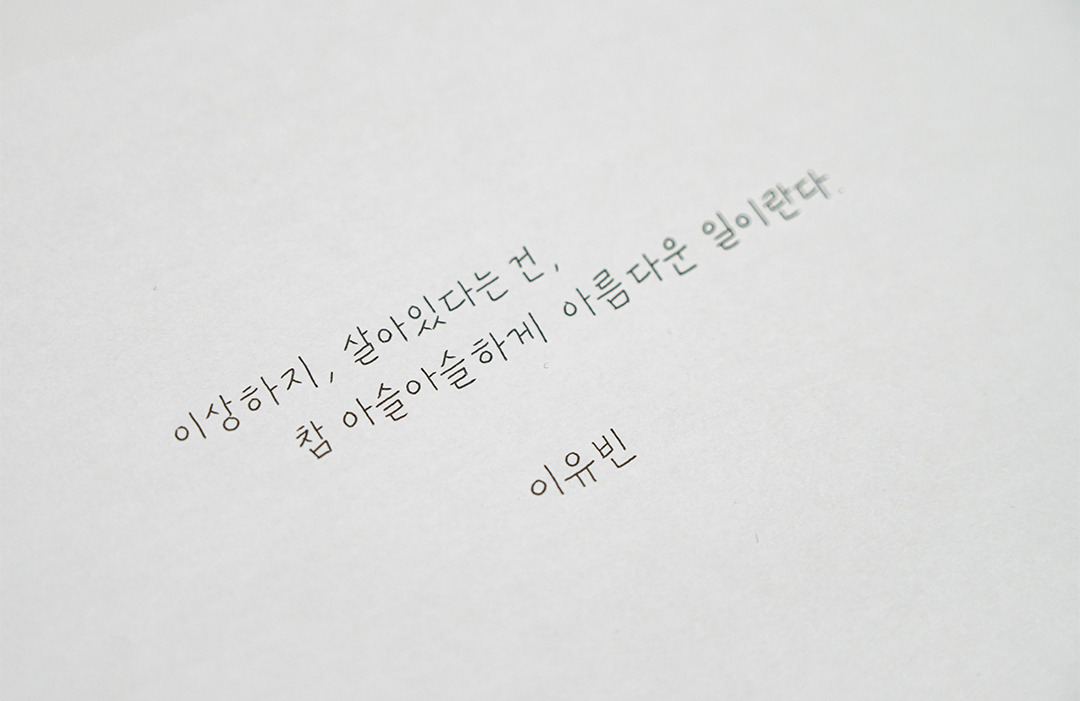 이상하지, 살아있다는 건,
참 아슬아슬하게 아름다운 일이란다.
이유빈